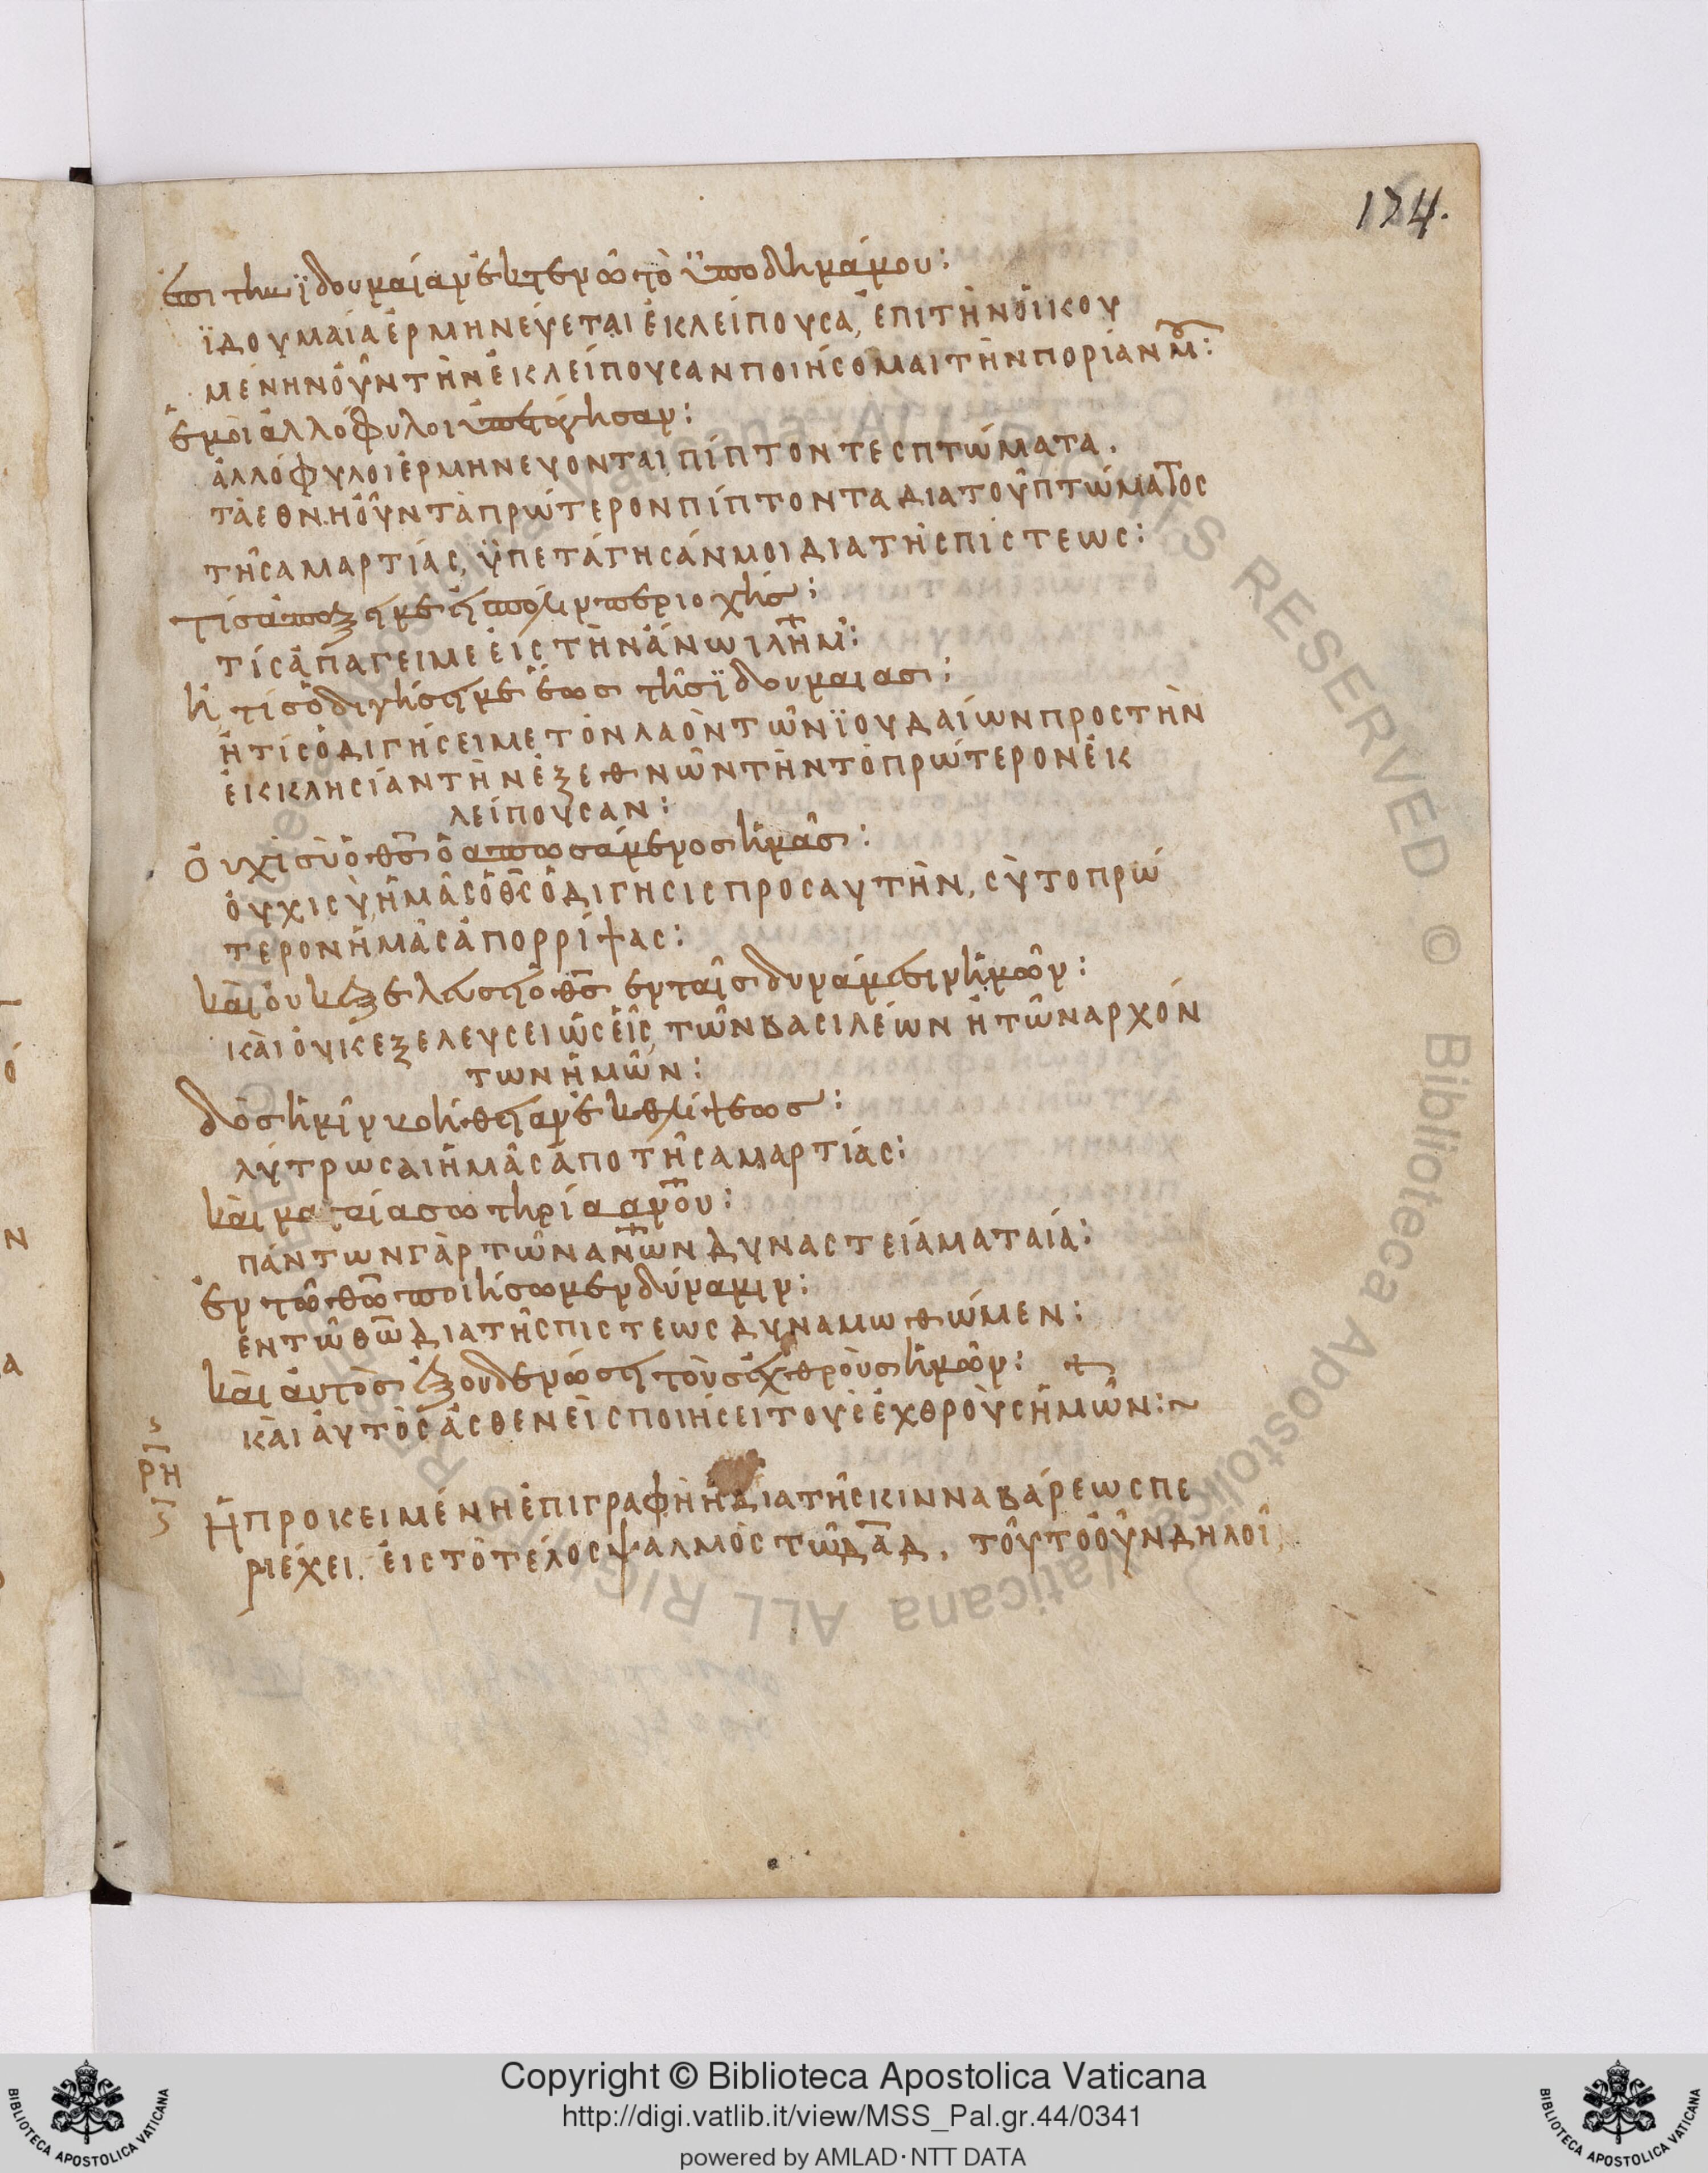 174.
ἐπι τὴν ϊδουμαίαν ἐκτενῶ τὸ ϋποδημάμου:
ϊδουμαία ἑρμηνεύεται ἐκλείπουσα, ἐπι τὴν ὀικου
μένην ὀῦν τὴν ἐκλείπουσαν ποιήσομαι τὴν πορίαν μ:
ἐμοὶ ἀλλόφυλοι ὑπετάγησαν:
ἀλλόφυλοι ἑρμηνεύονται πίπτοντες πτώματα.
τὰ εθνη ὀῦν τὰ πρώτερον πίπτοντα δια τοῦ πτώματος
τῆς αμαρτίας, ϋπετάγησάν μοι δια τῆς πίστεως:
τίς ἀπάξη με ἐις πόλιν περιοχῆς:
τίς ἀπάγει με ἐις τὴν ἄνω ιλημ:
ἢ τίς ὁδιγήση με ἕως τῆς ϊδουμαιας:
ἢ τίς ὁδιγήσει με τὸν λαὸν τῶν ϊουδαίων προς τὴν
ἐικκλησίαν τὴν ἐξ εθνῶν τὴν τὸ πρώτερον ἐκ
λείπουσαν:
ὀυχὶ σὺ ὁ θς ὁ απωσάμενος ἡμᾶς:
ὀυχι σὺ ἡμᾶς ὁ θς ὁδιγησις προς αυτὴν, σὺ το πρώ
τερον ἡμᾶς ἀπορρίψας:
καὶ ὀυκ ἐξελευση ὁ θς εν ταῖς δυνάμεσιν ἡμῶν:
κὰι ὀυκ εξελευσει ὡς ἐῖς, τῶν βασιλείων ἢ τῶν αρχόν
των ἡμῶν:
δὸς ἡμῖν βοήθειαν ἐκ θλίψεως:
λύτρωσαι ἡμᾶς ἀπο τῆς αμαρτίας:
κὰι ματαία σωτηρία ανου:
πάντων γὰρ τῶν ανων δυναστεία ματαία:
ἐν τῶ θω ποιήσωμεν δύναμιν:
ἐν τῶ θω δια τῆς πιστεως δυναμωθώμεν:
κὰι ἀυτὸς ἐξουδενώση τοὺς ἐχθροὺς ἡμῶν: +
κὰι ἀυτὸς ἀσθενεὶς ποιήσει τους ἐχθροὺς ἡμῶν:~
ΡΗ
Ἡ προκειμένη ἐπιγραφὴ ἡ δια τῆς κινναβάρεως πε
ριέχει. ἐις τὸ τέλος ψαλμὸς τῶ δαδ. τοῦτο ὀῦν δηλοῖ,
Copyright © Biblioteca Apostolica Vaticana
http://digi.vatlib.it/view/MSS_Pal.gr.44/0341
powered by AMLAD·NTT DATA